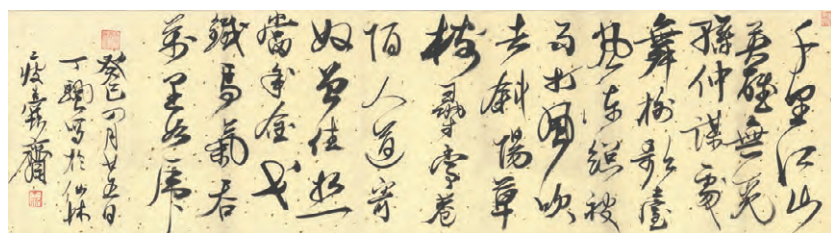 千里江山
英雄無覓
孫仲謀處
舞榭歌臺
風流總被
雨打風吹
去斜陽草
樹尋常巷
陌人道寄
奴曾住想
當年金戈
鐵馬氣吞
萬里如虎
癸巳四月廿五日
丁 寫於仙林